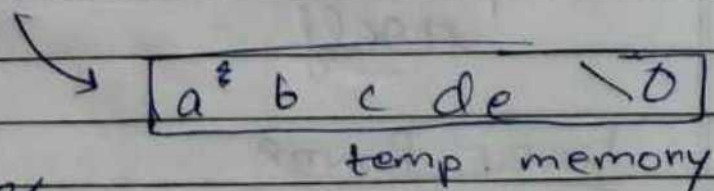 a b c d e \0
temp. memory